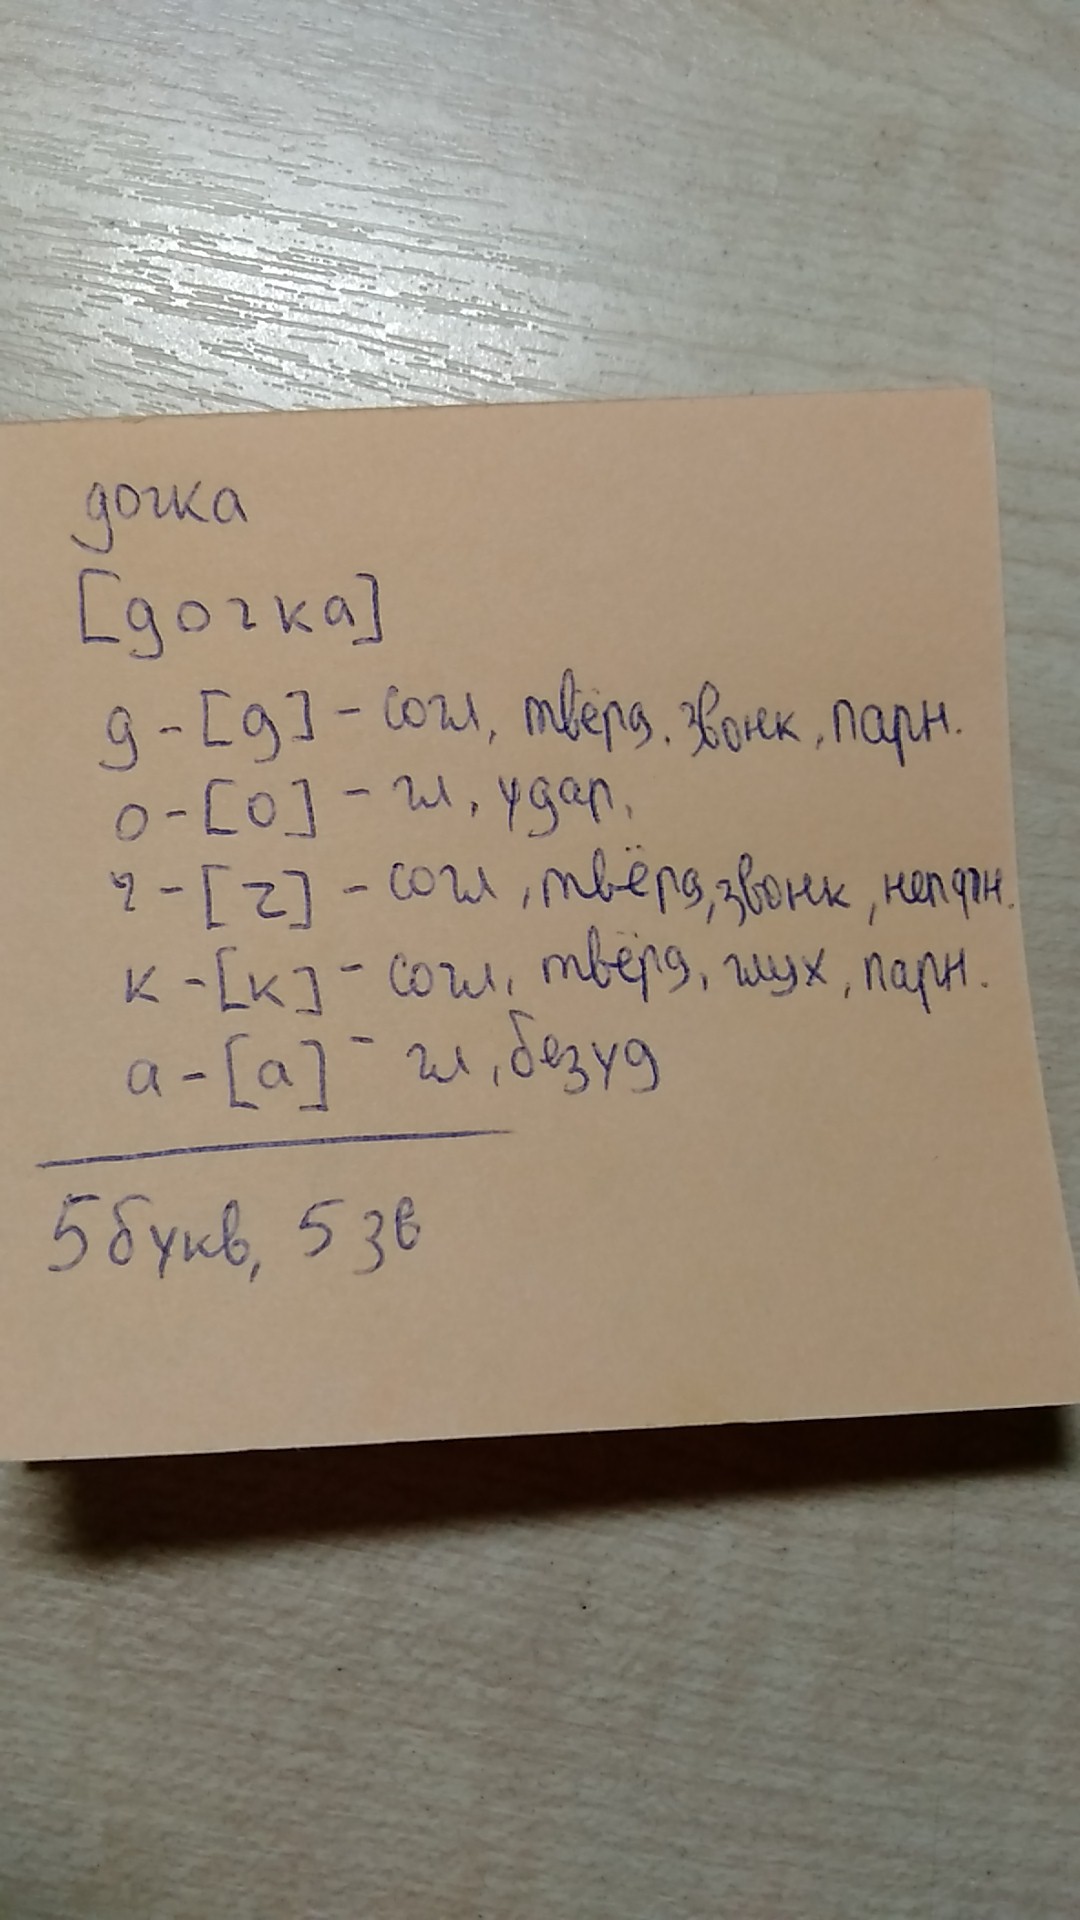 дочка
[дочка]
д - [д] - согл, твёрд. звонк, парн.
о - [о] - гл, удар,
ч - [ч] - согл, твёрд, звонк, непарн.
к - [к] - согл, твёрд, глух, парн.
а - [а] - гл, безуд
5 букв, 5 зв